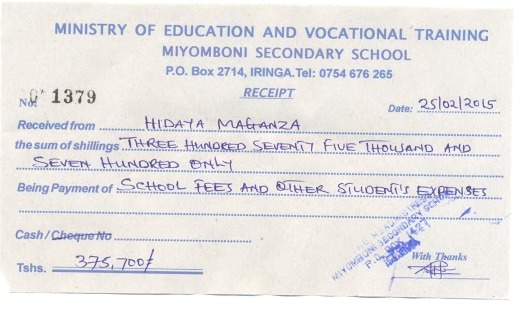 MINISTRY OF EDUCATION AND VOCATIONAL TRAINING
MIYOMBONI SECONDARY SCHOOL
P.O. Box 2714, IRINGA. Tel: 0754 676 265
RECEIPT
No. 1379
Date: 25/02/2015
Received from HIDAYA MAGANZA
the sum of shillings THREE HUNDRED SEVENTY FIVE THOUSAND AND
SEVEN HUNDRED ONLY
Being Payment of SCHOOL FEES AND OTHER STUDENT'S EXPENSES
Cash / Cheque No
MIYOMBONI SECONDARY SCHOOL
P.O.
With Thanks
Tshs. 375,700/